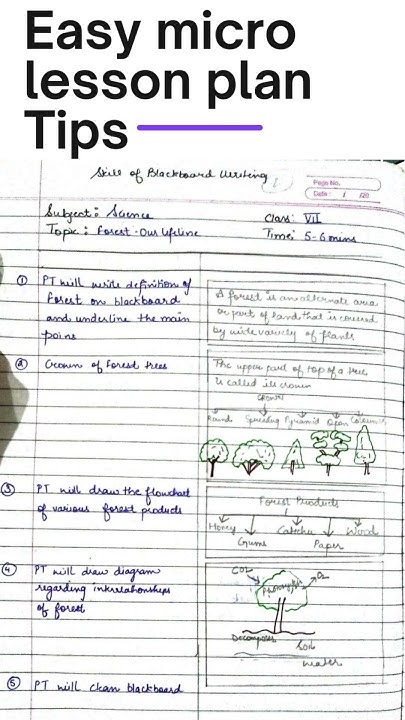 Easy micro
lesson plan
Tips
Skill of Blackboard Writing
Page No.
Date: / /20
Subject: Science
Class: VII
Topic: Forest-Our lifeline
Time: 5-6 mins
① PT will write definition of
forest on blackboard
and underline the main
poins
A forest is an alternate area
or part of land that is covered
by wide variety of plants
② Crown of forest trees
The upper part of top of a tree
is called its crown
CROWN
Round Spreading Pyramid Open Columnar
③ PT will draw the flowchart
of various forest products
Forest Products
Honey Catechu Wood
Gums Paper
④ PT will draw diagram
regarding interrelationships
of forest
CO2 O2
Decomposers
Soil
Water
⑤ PT will clean blackboard